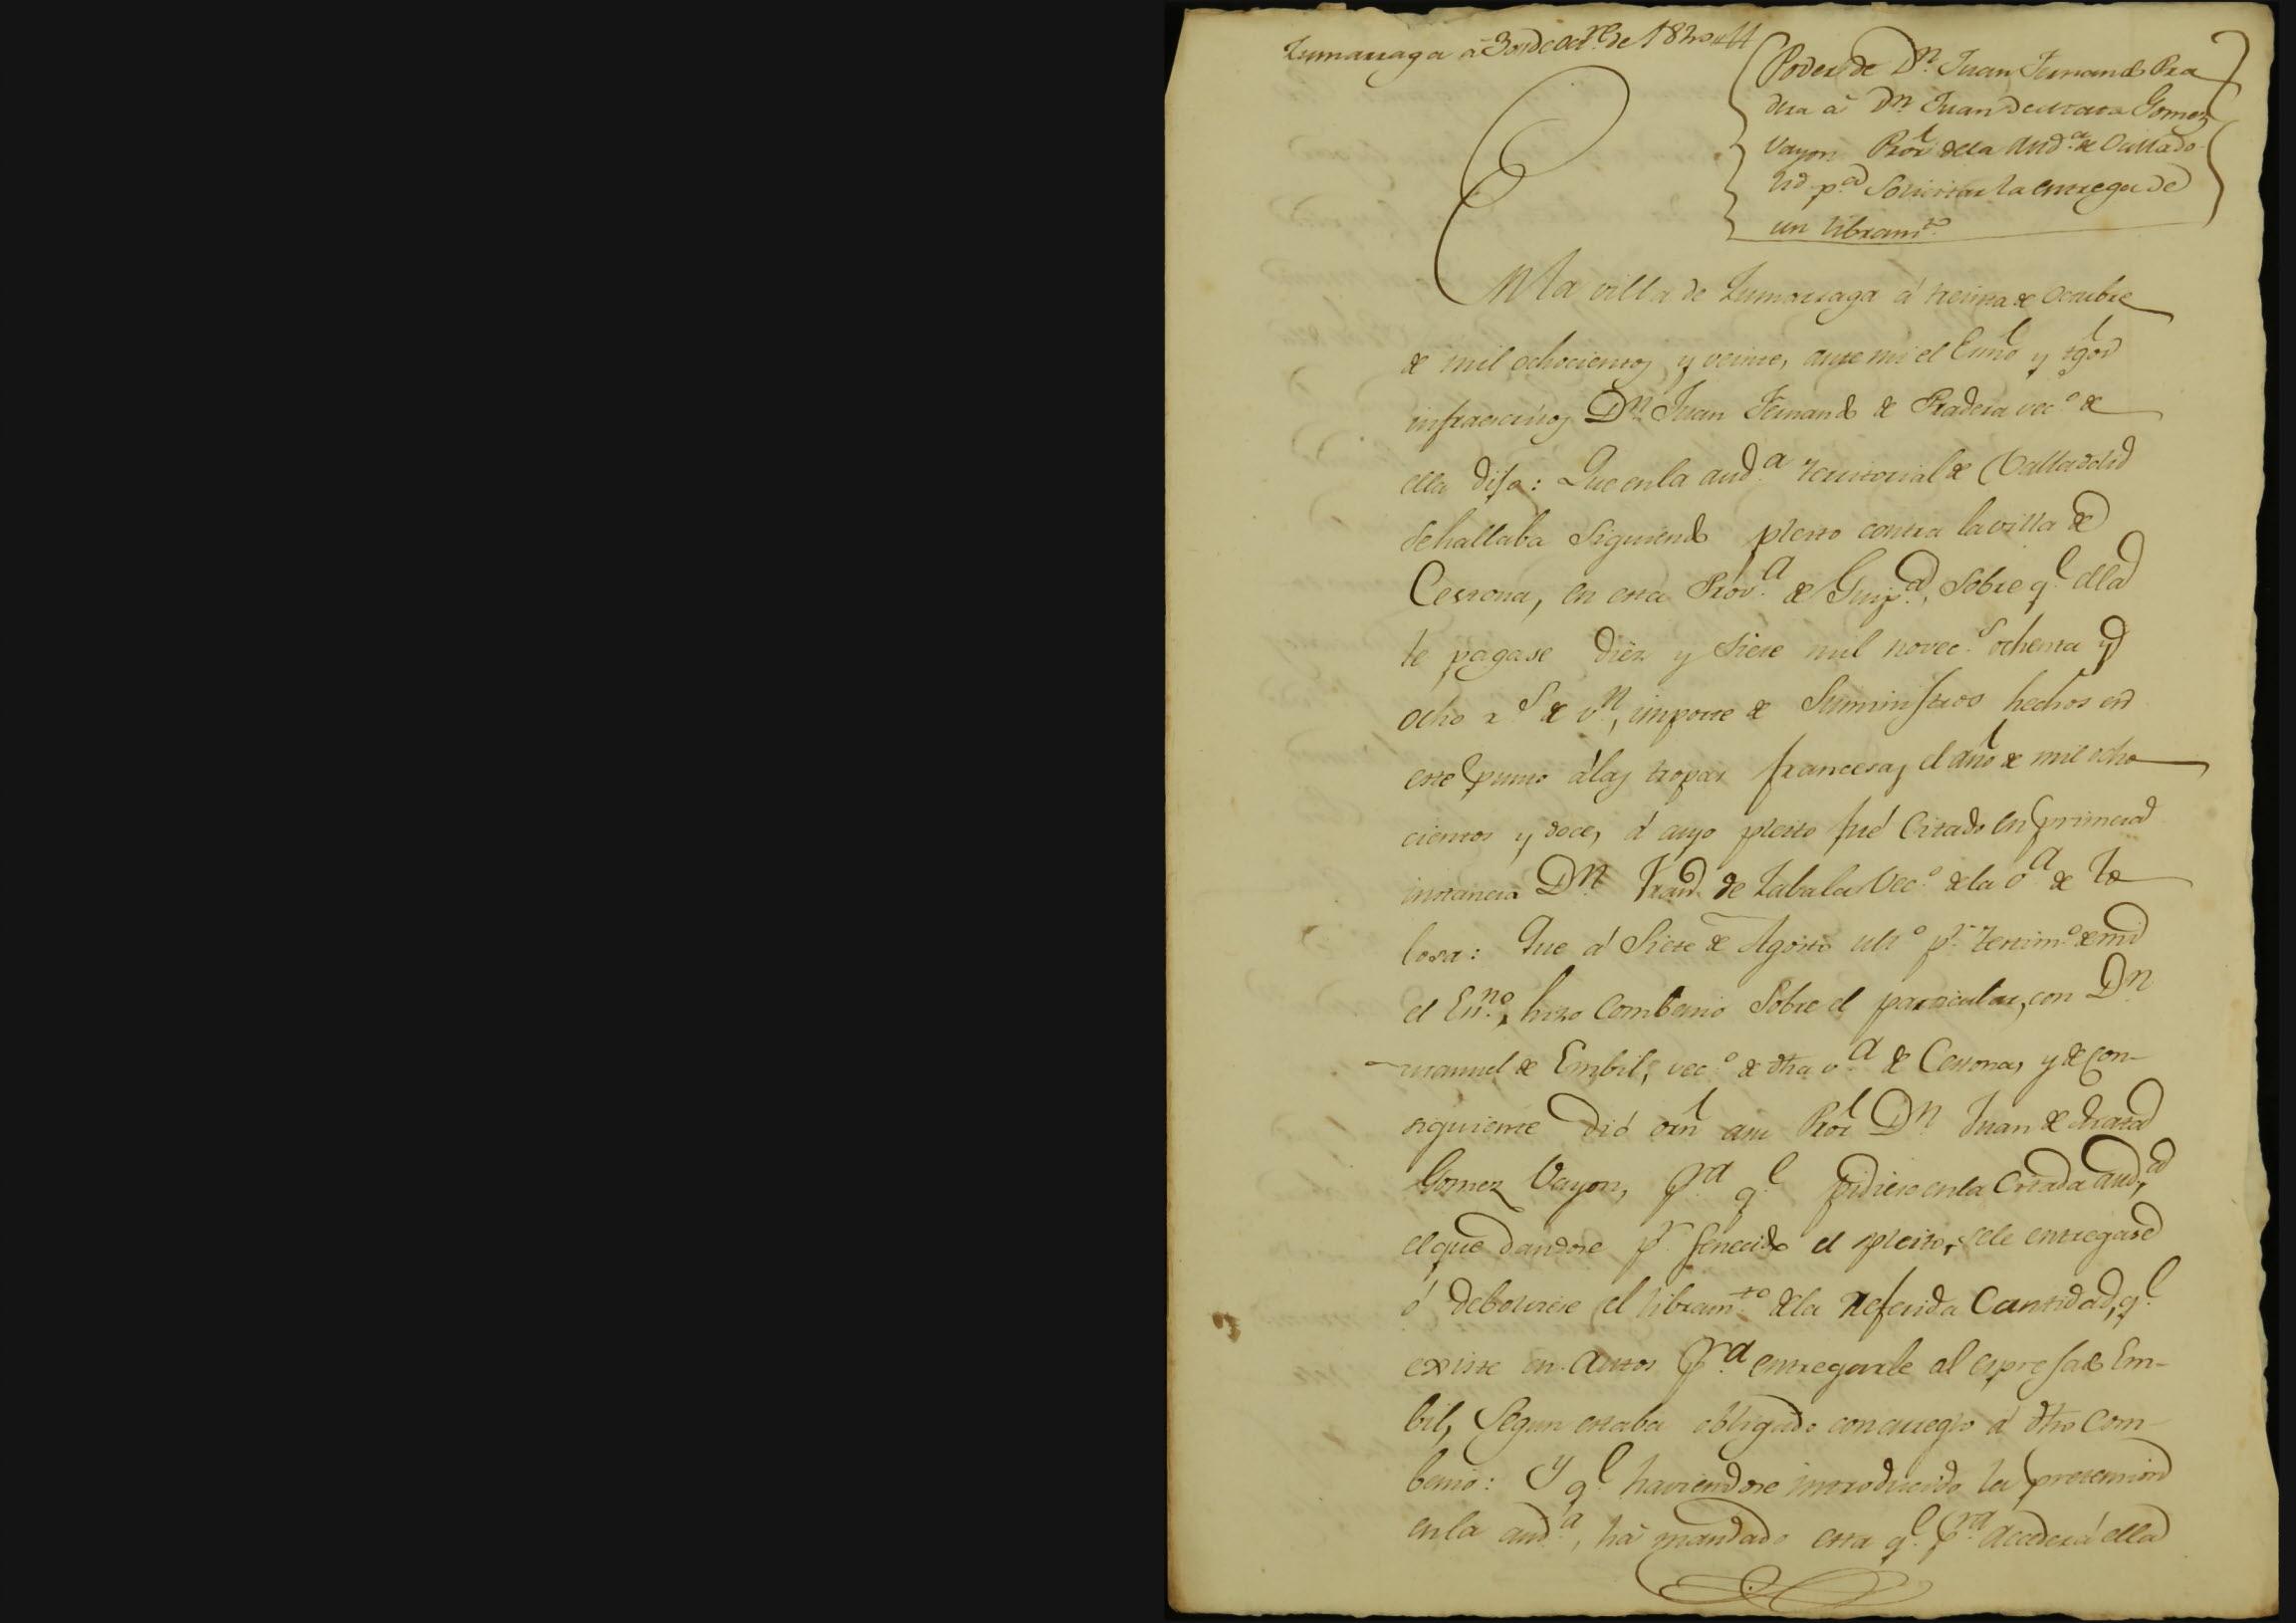 Zumarraga á 30 de Octre de 1820
Poder de Dn. Juan Fernando Pra
dera á Dn. Juan de Mata Gomez
Vayon Pror. dela Auda. de Vallado
lid pa. solicitar la entrega de
un libramto.
En la villa de Zumarraga á treinta de Octubre
de mil ochocientos y veinte, ante mi el Esno. y tgos.
infraescritos Dn. Juan Fernando de Pradera veco. de
ella dijo: Que en la auda. territorial de Valladolid
se hallaba siguiendo pleito contra la villa de
Cestona, en esta Prova. de Guipa., sobre qe. ella
le pagase diez y siete mil novecs. ochenta y
ocho rs. de vn., importe de suministros hechos en
este punto á las tropas francesas el año de mil ocho
cientos y doce, á cuyo pleito fué citado en primera
instancia Dn. de Zabala veco. de la va. de To
losa: Que á siete de Agosto ulto. pr. testimo. de mi
el Esno., hizo combenio sobre el particular, con Dn.
Manuel de Embil, veco. de dha va. de Cestona, y de con-
siguiente dió orn. a su Pror. Dn. Juan de Mata
Gomez Vayon, pra. qe. pidiese en la citada auda.,
el que dandose pr. fenecido el pleito, se le entregase
ó debolviese el libramto. de la referida cantidad, qe.
existe en autos pra. entregarle al espresado Em-
bil, segun estaba obligado con arreglo á dho com-
benio: Y qe. haviendose introducido la pretension
en la auda., há mandado esta qe. pra. acceder á ella